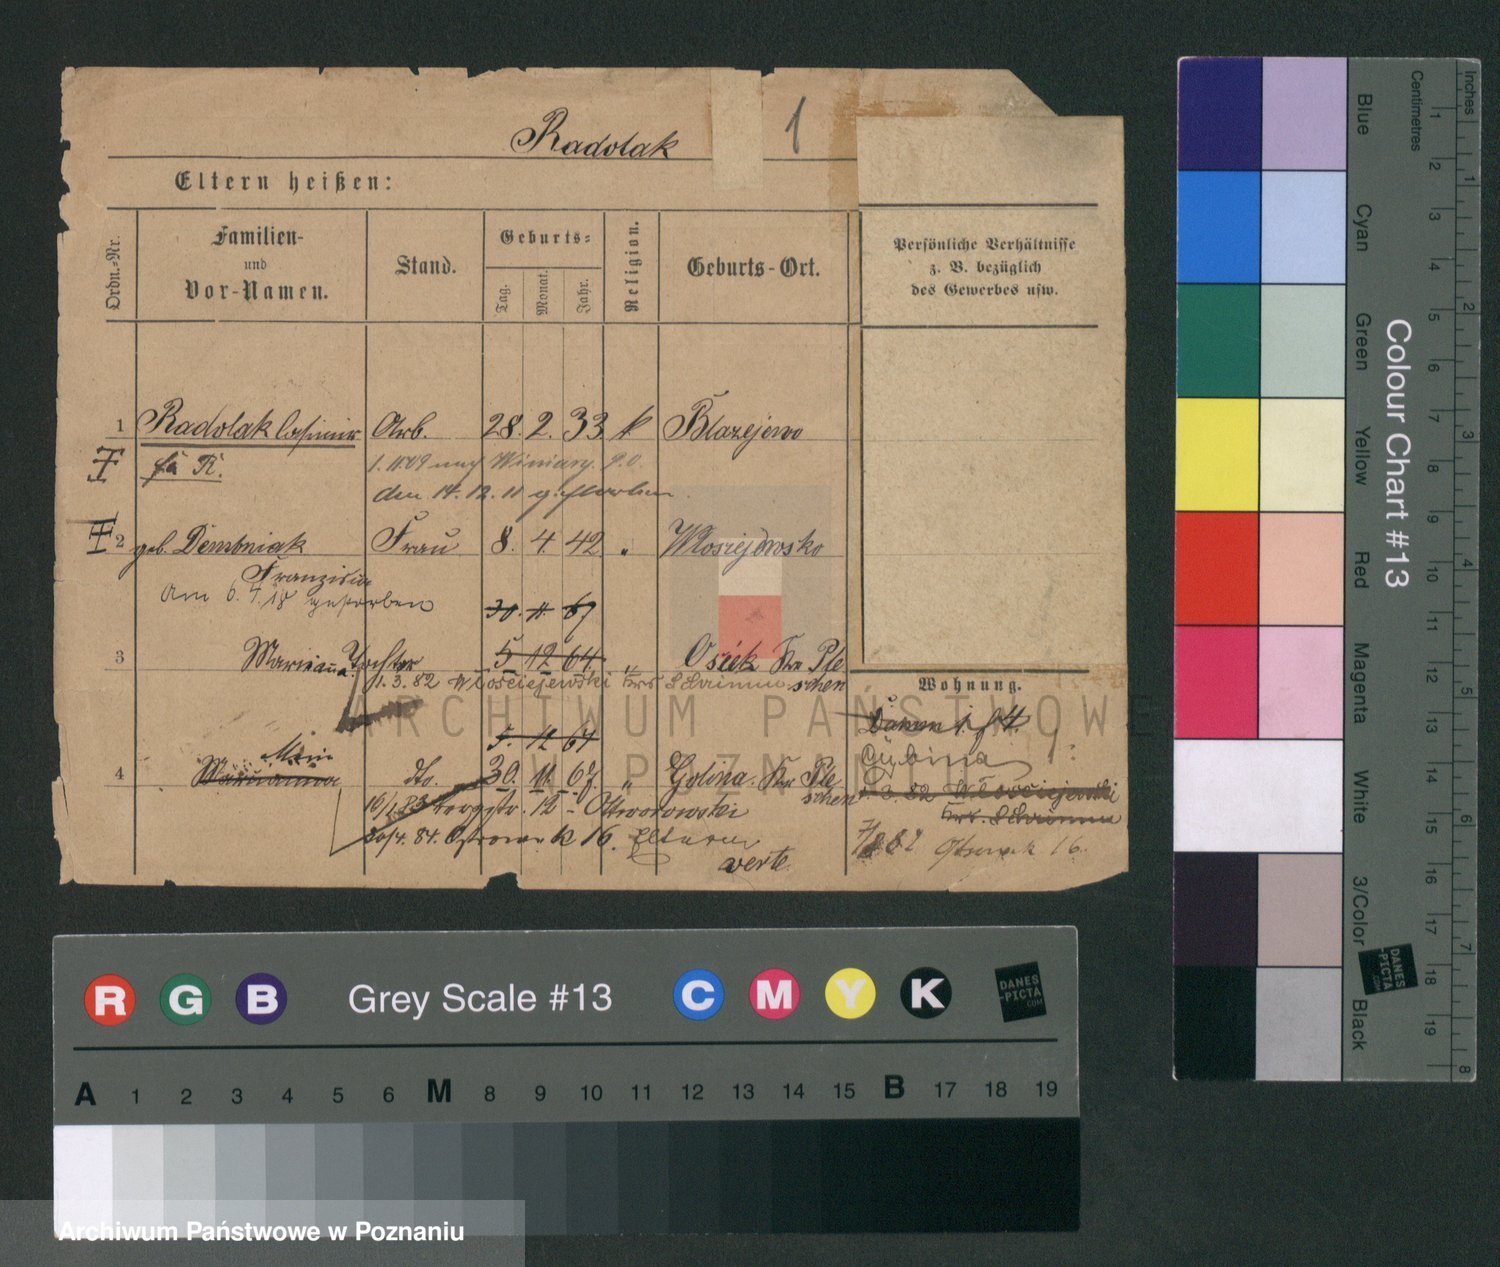 Radolak 1
Eltern heißen:
Ordn.-Nr.
Familien-
und
Vor-Namen.
Stand.
Geburts-
Tag.
Monat.
Jahr.
Religion.
Geburts-Ort.
Persönliche Verhältnisse
z. B. bezüglich
des Gewerbes usw.
1 Radolak Casimir Arb. 28. 2. 33 k Blazejewo
den 14. 12. 11 gestorben
2 geb. Dembniak Frau 8. 4. 42 "
Franziska
am 6. gestorben
30. 11. 67
3 Marianna Tochter 5 12 64. " Osiek Kr. Ple
1. 3. 82 Wlosciejewski Krs Schrimm schen
Wohnung.
5. 12 67
4 Marianna dto. 30. 11. 67. " Golina Kr. Ple
schen
Cybina
3. 82 Wlosciejewski
Krs. Schrimm
Bergstr. 12 - Ottworowski
20/4. 84. Ostrowek 16. Eltern
Ostrowek 16.
verte
ARCHIWUM PAŃSTWOWE
W POZNANIU
Colour Chart #13
Blue
Cyan
Green
Yellow
Red
Magenta
White
3/Color
Black
Centimetres
1 2 3 4 5 6 7 8 9 10 11 12 13 14 15 16 17 18 19
Inches
1 2 3 4 5 6 7 8
DANES
-PICTA
.COM
R G B Grey Scale #13 C M Y K
DANES
-PICTA
.COM
A 1 2 3 4 5 6 M 8 9 10 11 12 13 14 15 B 17 18 19
Archiwum Państwowe w Poznaniu